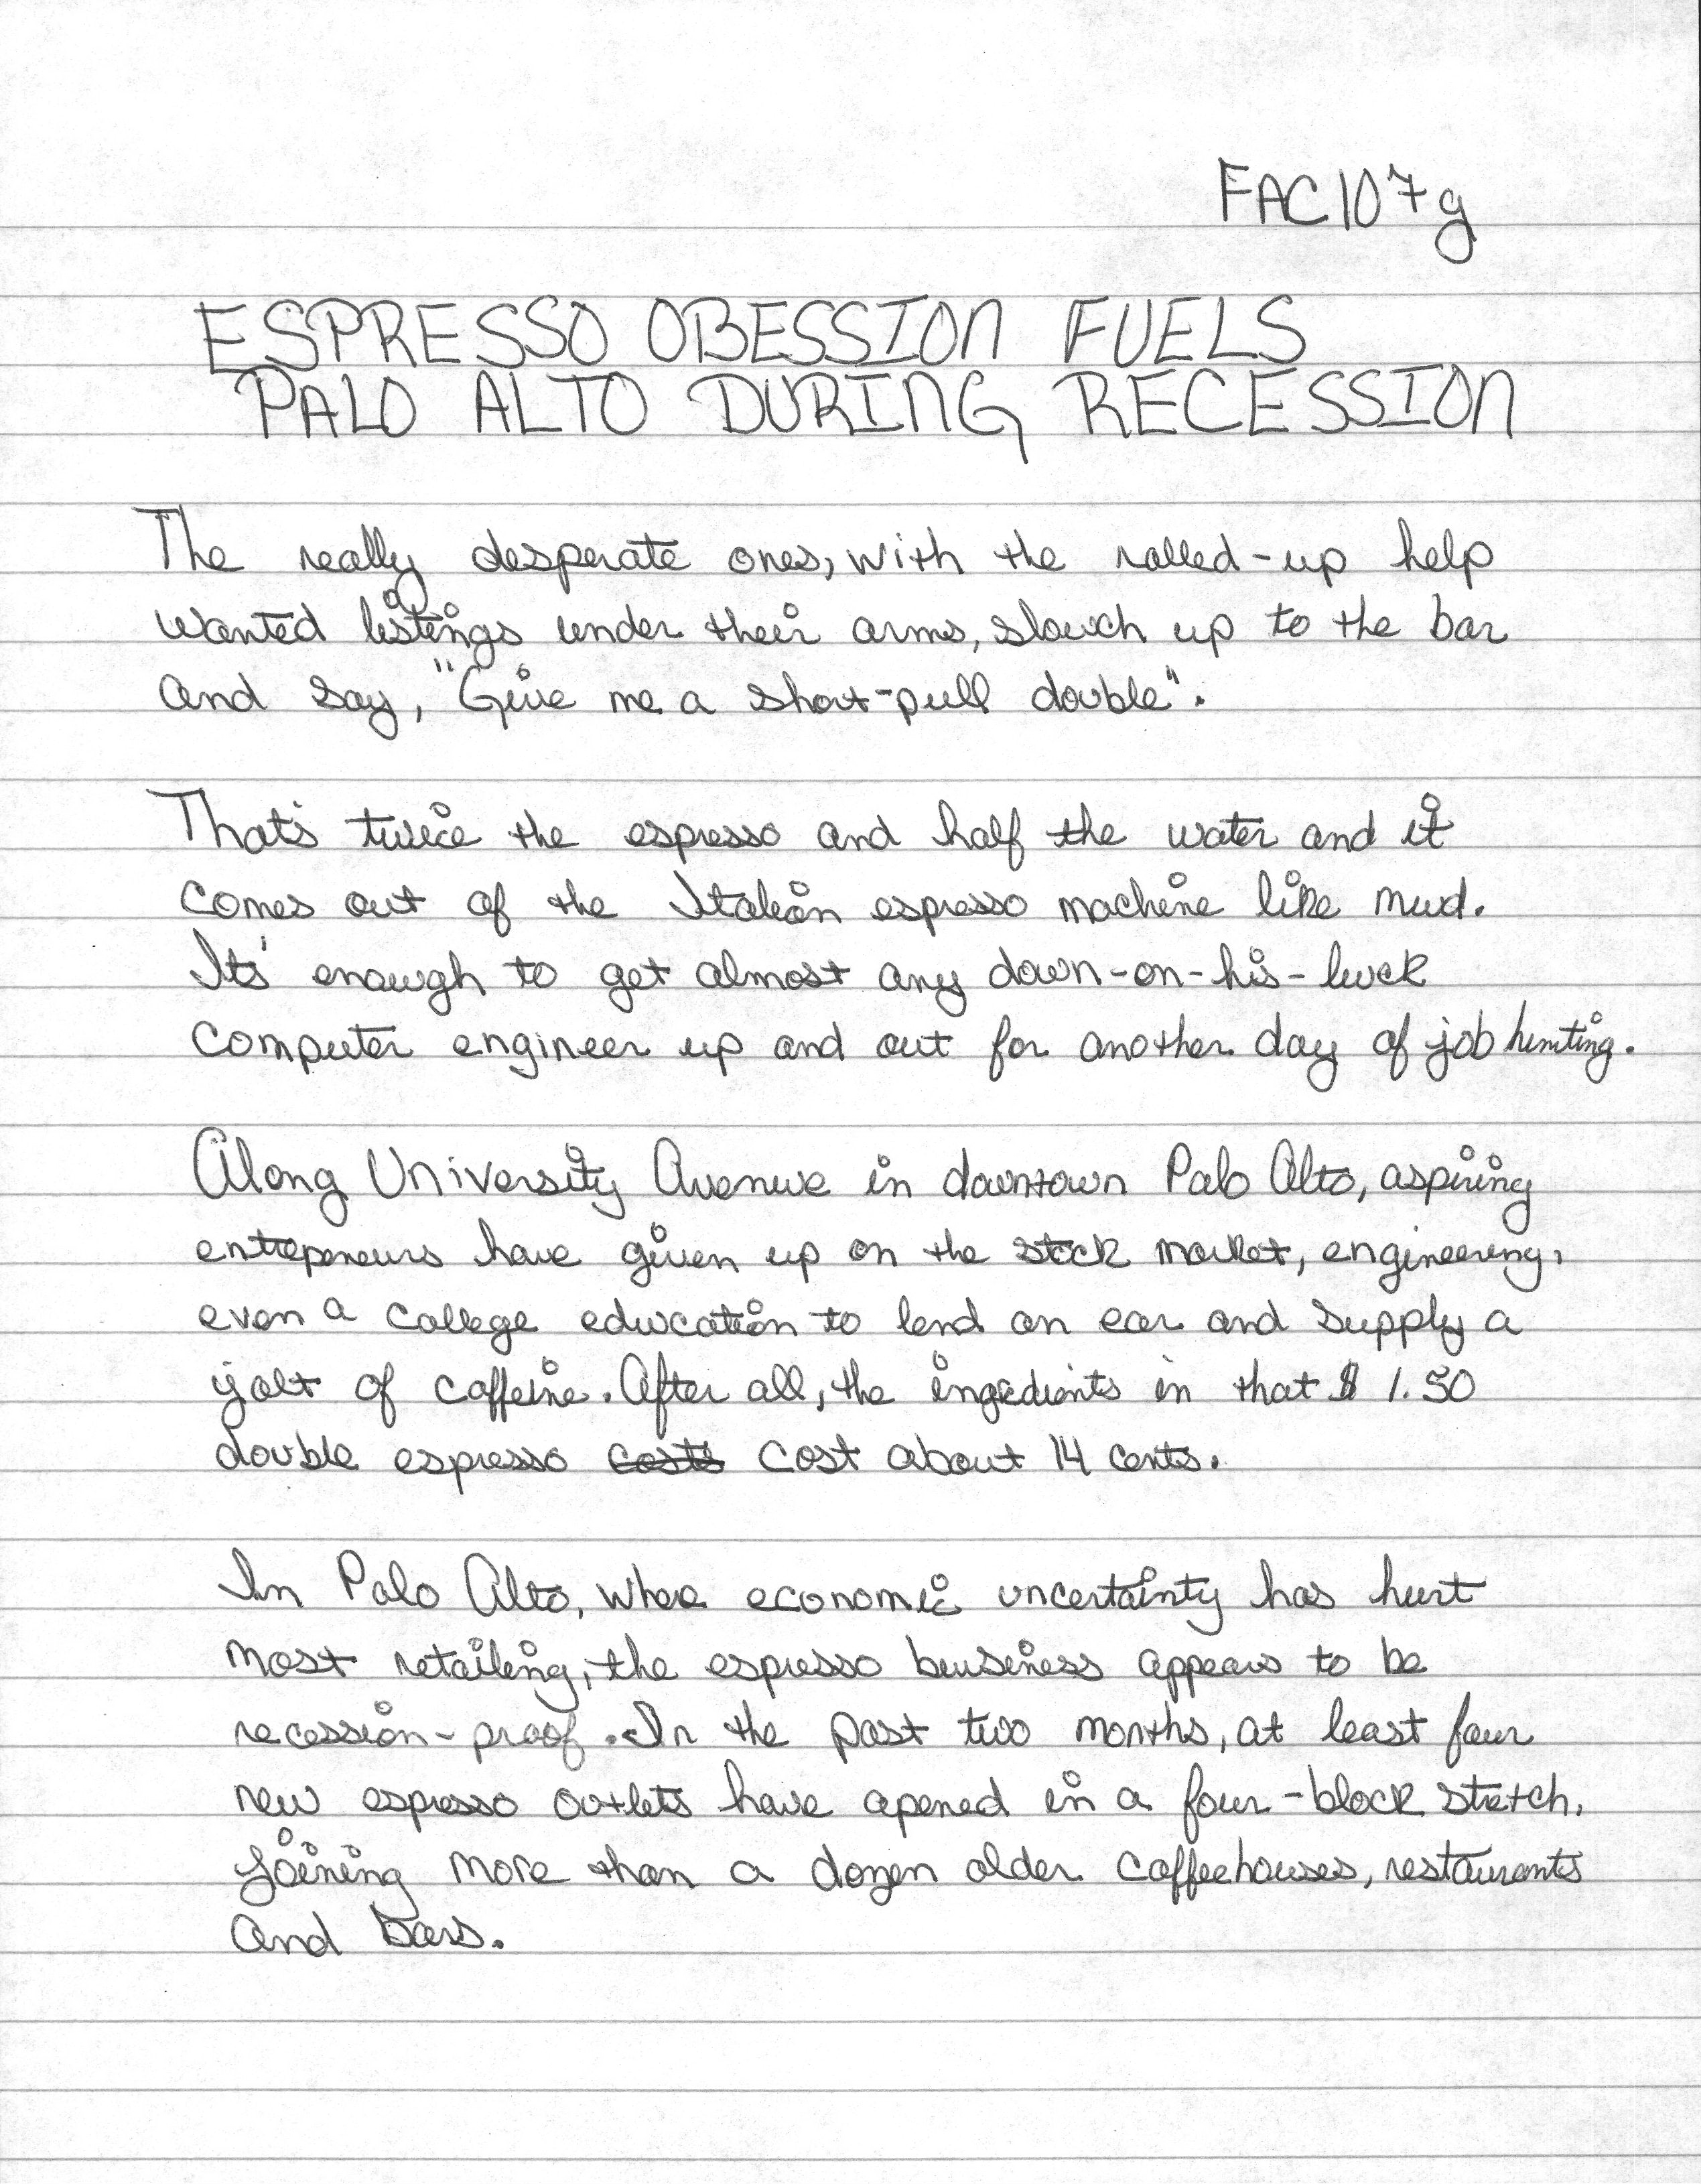 FAC107g
ESPRESSO OBESSION FUELS
PALO ALTO DURING RECESSION
The really desperate ones, with the rolled-up help
wanted listings under their arms, slouch up to the bar
and say, "Give me a short-pull double".
That's twice the espresso and half the water and it
comes out of the Italian espresso machine like mud.
It's enough to get almost any down-on-his-luck
computer engineer up and out for another day of job hunting.
Along University Avenue in downtown Palo Alto, aspiring
entrepeneurs have given up on the stock market, engineering,
even a college education to lend an ear and supply a
jolt of caffeine. After all, the ingredients in that $1.50
double espresso costs cost about 14 cents.
In Palo Alto, where economic uncertainty has hurt
most retailing, the espresso business appears to be
recession-proof. In the past two months, at least four
new espresso outlets have opened in a four-block stretch,
joining more than a dozen older coffeehouses, restaurants
and bars.